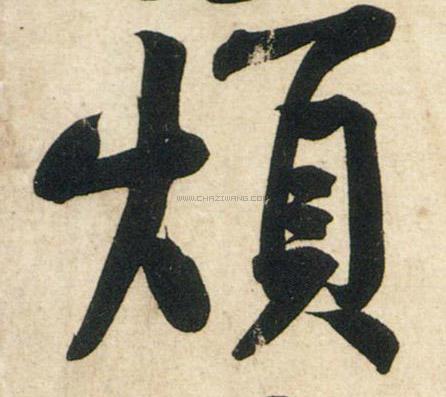 煩
WWW.CHAZIWANG.COM